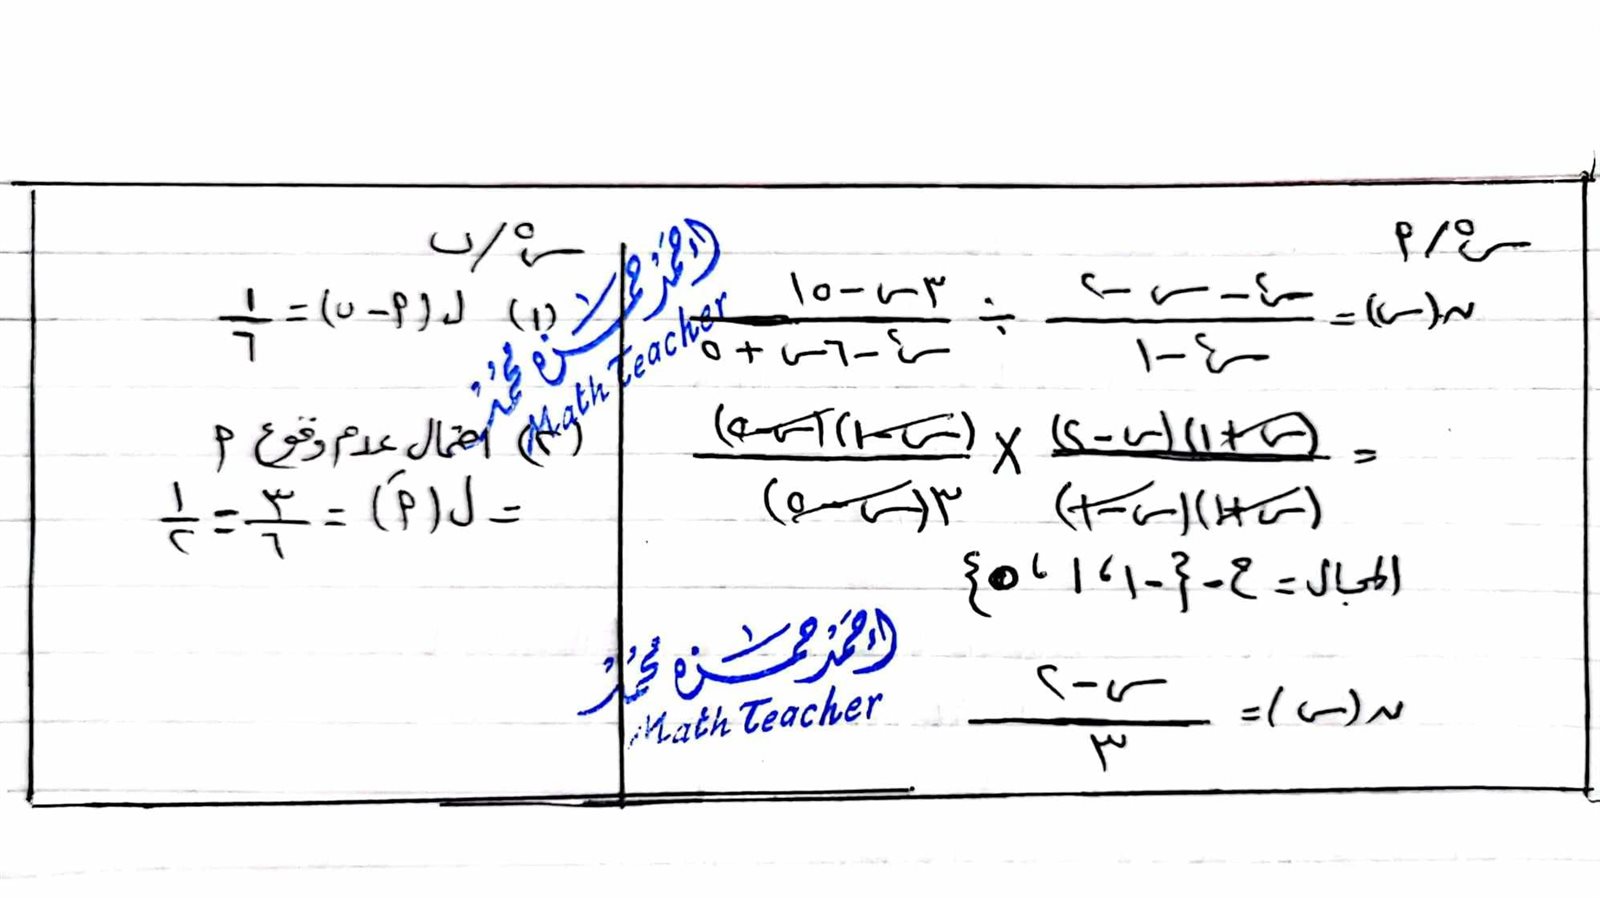 س٥/ أ
ن(س) = (س² - س - ٢)/(س² - ١) ÷ (٣س - ١٥)/(س² - ٦س + ٥)
= (س + ١)(س - ٢)/(س + ١)(س - ١) × (س - ١)(س - ٥)/٣(س - ٥)
المجال = ح - {-١، ١، ٥}
ن(س) = (س - ٢)/٣
س٥/ ب
(١) ل(أ - ب) = ١/٦
(٢) احتمال عدم وقوع أ
= ل(أَ) = ٣/٦ = ١/٢
أحمد حمزه محمد
Math Teacher
أحمد حمزه محمد
Math Teacher